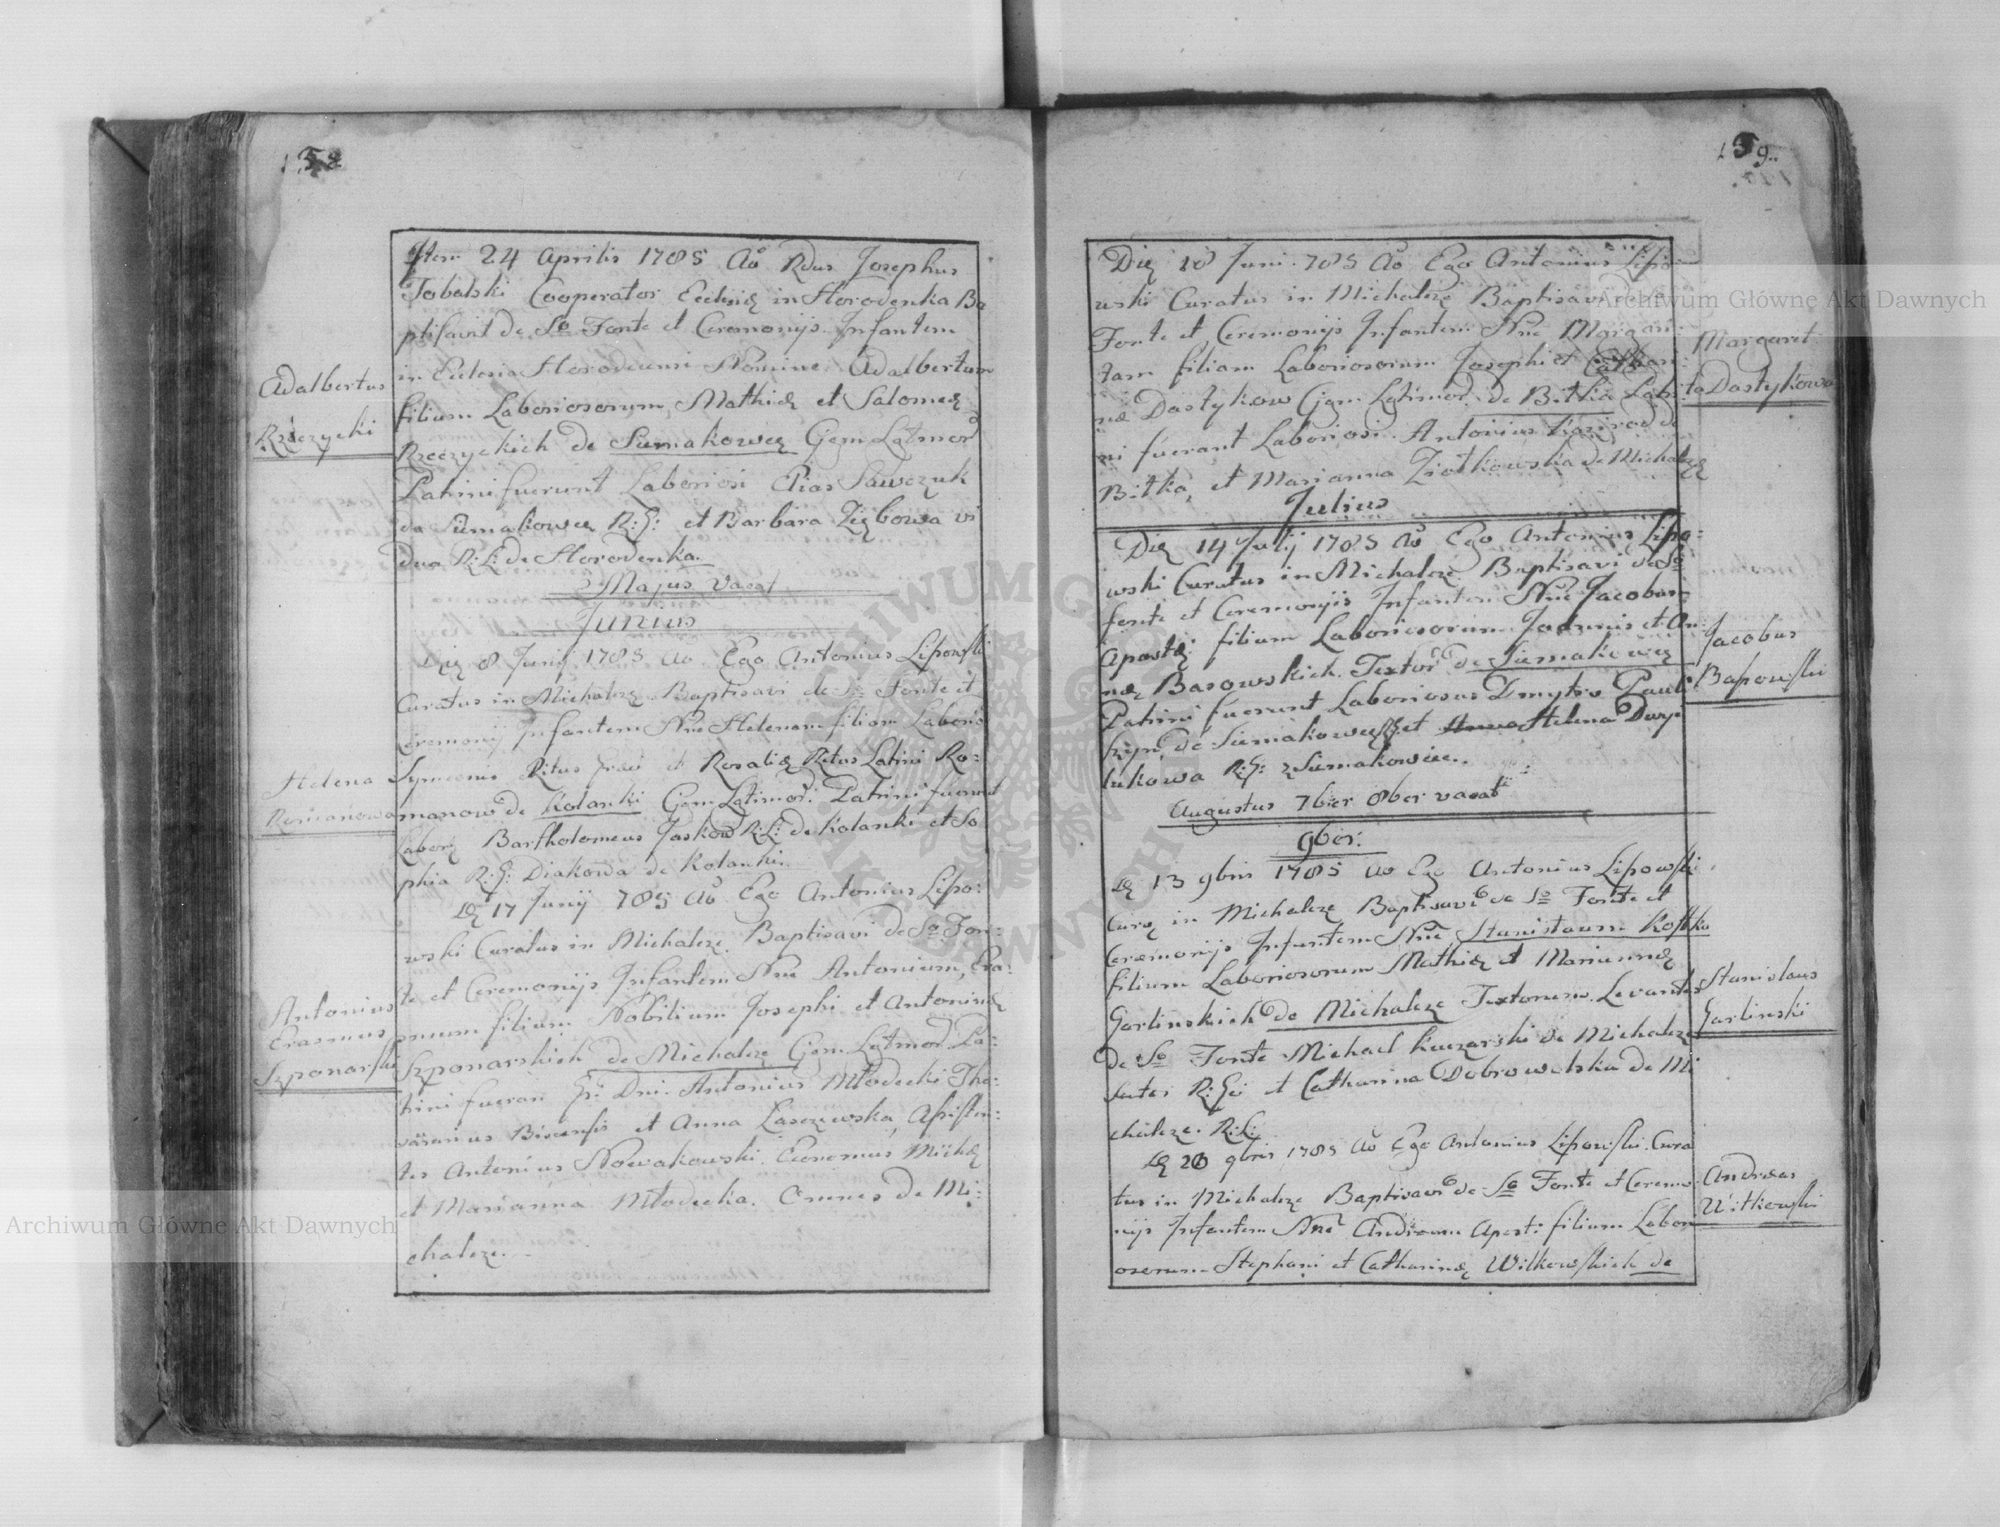 158
Item 24 Aprilis 1785 Aō Rdus Josephus
Tobolski Cooperator Ecclniæ in Horodenka Ba
ptisavit de So Fonte et Ceremonijs Infantem
in Eclesia Horodecensi Nomine Adalbertum
Adalbertus
filium Laboriosorum Mathiæ et Salomeæ
Rzeczycki
Rzeczyckich de Siemakowce Gem Latmor
Patrini fuerunt Laboriosi Elias Sawczuk
de Siemakowce R: G: et Barbara Ziębowa vi
dua R: L: de Horodenka.
Majus vacat
Junius
Die 8 Junij 1785 Aō Ego Antonius Lipowski
Curatus in Michalcze Baptisavi de So Fonte et
Ceremonij Infantem Nne Helenam filiam Laborio
Helena
Symeonis Ritus Græci et Rosaliæ Ritus Latini Ro-
Romanowa
manow de Kolanki Gem Latimor: Patrini fuerunt
Labori Bartholomeus Jaskow R: L: de Kolanki et So
phia R: G: Diakowa de Kolanki.
De 17 Junij 785 Aō Ego Antonius Lipo-
wski Curatus in Michalcze Baptisavi de So Fon-
Antonius
te et Ceremonijs Infantem Nne Antonium, Era-
Erasmus
smum filium Nobilium Josephi et Antoninæ
Szponarski
Szponarskich de Michalcze Gem Latmor Pa-
trini fueran Gr: Dni. Antonius Młodecki The-
saurarius et Anna Laszewska, Assisten-
tes Antonius Nowakowski Economus Michæ
et Marianna Młodecka. Omnes de Mi-
chalcze.
159.
Die 18 Juni 785 Aō Ego Antonius Lipo
wski Curatus in Michalcze Baptisavi
Fonte et Ceremonijs Infantem Nne Margari-
Margaret
tam filiam Laboriosorum Josephi et Cathari-
ta Dastykowa
næ Dastykow Gem Latimor: de Bitka Patri-
ni fuerant Laboriosi Antonius de
Bitka, et Marianna Ziołkowska de Michalcze
Julius
Die 14 Julij 1785 Aō Ego Antonius Lipo-
wski Curatus in Michalcze Baptisavi de So
fonte et Ceremonijs Infantem Nne Jacobum
Apostoli filium Laboriosorum Joannis et An-
Jacobus
næ Basowskich Textor de Siemakowce
Basowski
Patrini fuerunt Laboriosus Dmytro Pauli
szyn de Siemakowce et Anna Helena
lukowa R: G: z Siemakowiec.
Augustus 7bier 8ber vacat
9ber:
De 13 9bris 1785 Aō Ego Antonius Lipowski
Curq in Michalcze Baptisavi de So Fonte et
Ceremonijs Infantem Nne Stanislaum Kostka
filium Laboriosorum Mathiæ et Mariannæ
Stanislaus
Garlinskich de Michalcze Textorum. Levantes
Garlinski
de So Fonte Michael Kuczarski de Michalcze
R: G: et Catharina Dobrowolska de Mi
chalcze. R: L:
De 28 9bris 1785 Aō Ego Antonius Lipowski. Cura
Andreas
tus in Michalcze Baptisavi de So Fonte et Ceremo-
Witkowski
nijs Infantem Nne Andream Apost: filium Labori
osorum Stephani et Catharinæ Witkowskich de
Archiwum Główne Akt Dawnych
Archiwum Główne Akt Dawnych